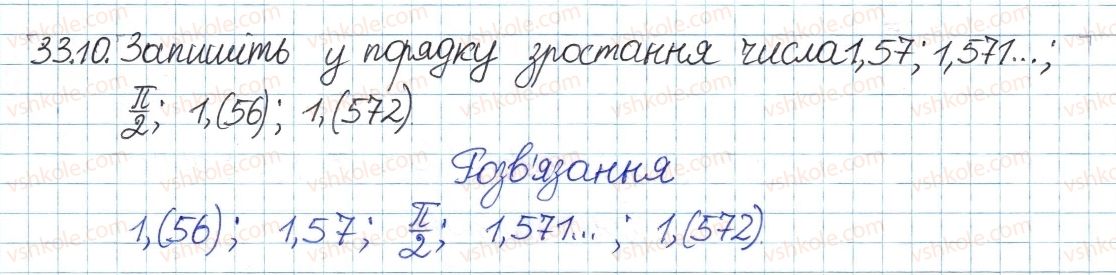 33.10. Запишіть у порядку зростання числа 1,57; 1,571...;
π/2; 1,(56); 1,(572).
Розв'язання
1,(56); 1,57; π/2; 1,571...; 1,(572).